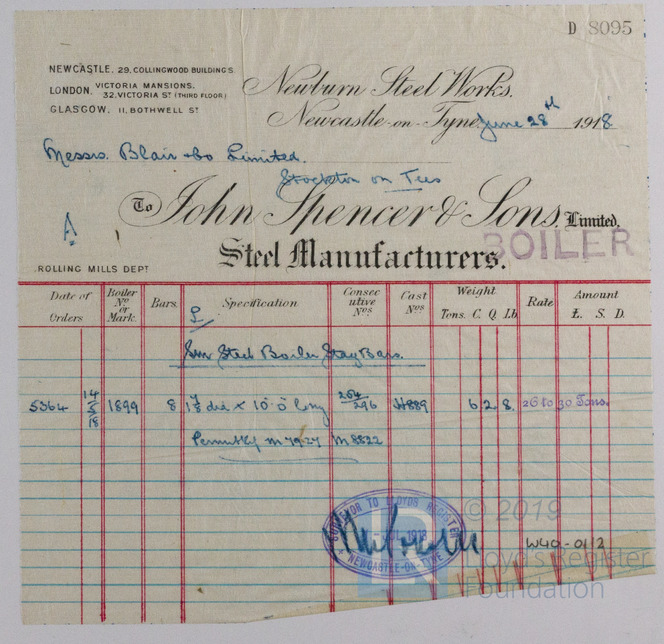 D 8095
NEWCASTLE, 29, COLLINGWOOD BUILDINGS.
LONDON, VICTORIA MANSIONS,
32, VICTORIA ST (THIRD FLOOR)
GLASGOW, 11, BOTHWELL ST
Newburn Steel Works.
Newcastle-on-Tyne, June 28th 1918
Messrs. Blair & Co Limited.
Stockton on Tees
A
To John Spencer & Sons, Limited,
BOILER
Steel Manufacturers.
ROLLING MILLS DEPT
Date of Orders Boiler No or Mark. Bars. Specification Consecutive Nos Cast Nos Weight Tons. C. Q. Lb Rate Amount £. S. D.
Steel Boiler Stay Bars.
5364 14/5/18 1899 8 dia x 10' 0" long 264/296 H889 6 2 8. 26 to 30 Tons.
M 7927 M 8822
SURVEYOR TO LLOYDS REGISTER
NEWCASTLE-ON-TYNE
W40-0112
© 2019
LR Lloyd's Register
Foundation